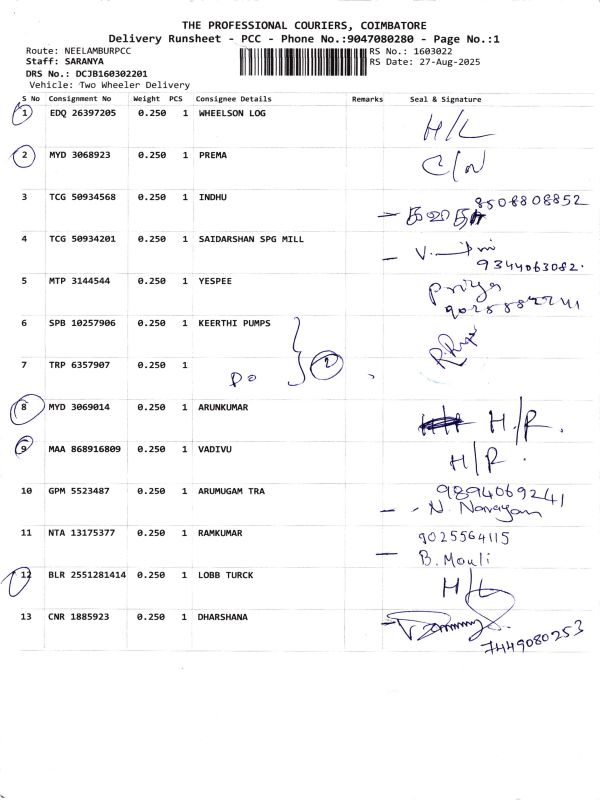 THE PROFESSIONAL COURIERS, COIMBATORE
Delivery Runsheet - PCC - Phone No.:9047080280 - Page No.:1
Route: NEELAMBURPCC RS No.: 1603022
Staff: SARANYA RS Date: 27-Aug-2025
DRS No.: DCJB160302201
Vehicle: Two Wheeler Delivery
S No Consignment No Weight PCS Consignee Details Remarks Seal & Signature
1 EDQ 26397205 0.250 1 WHEELSON LOG H/L
2 MYD 3068923 0.250 1 PREMA C/N
3 TCG 50934568 0.250 1 INDHU 8508808852
4 TCG 50934201 0.250 1 SAIDARSHAN SPG MILL
9344063082.
5 MTP 3144544 0.250 1 YESPEE Priya
6 SPB 10257906 0.250 1 KEERTHI PUMPS
7 TRP 6357907 0.250 1 DO 2
8 MYD 3069014 0.250 1 ARUNKUMAR H/R.
9 MAA 868916809 0.250 1 VADIVU H/R.
10 GPM 5523487 0.250 1 ARUMUGAM TRA 9894069241
- N. Narayan
11 NTA 13175377 0.250 1 RAMKUMAR 9025564115
- B. Mouli
12 BLR 2551281414 0.250 1 LOBB TURCK H/L
13 CNR 1885923 0.250 1 DHARSHANA
7449080253